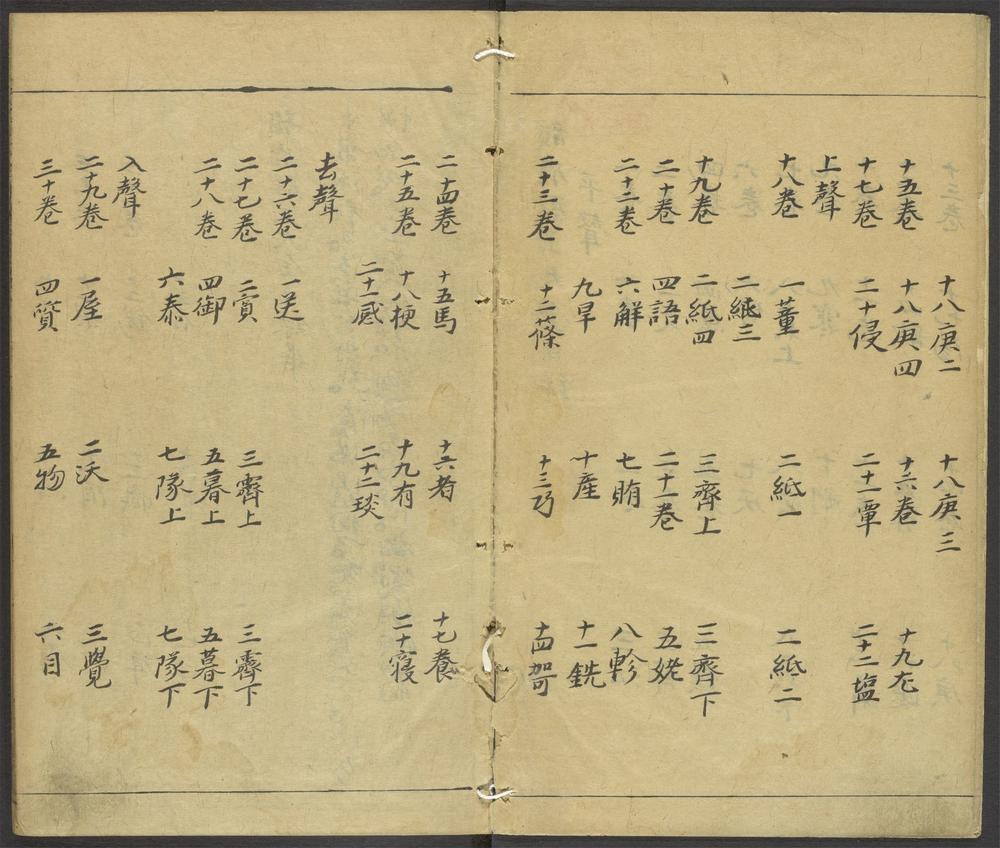 十八庚二 十八庚三
十五卷 十八庚四 十六卷 十九尤
十七卷 二十侵 二十一覃 二十二塩
上聲
十八卷 一董 二紙一 二紙二
二紙三
十九卷 二紙四 三齊上 三齊下
二十卷 四語 二十一卷 五姥
二十二卷 六解 七賄 八軫
九旱 十產 十一銑
二十三卷 十二篠 十三巧 十四哿
二十四卷 十五馬 十六者 十七養
二十五卷 十八梗 十九有 二十寑
二十一感 二十二琰
去聲
二十六卷 一送
二十七卷 二寘 三霽上 三霽下
二十八卷 四御 五暮上 五暮下
六泰 七隊上 七隊下
入聲
二十九卷 一屋 二沃 三覺
三十卷 四質 五物 六月